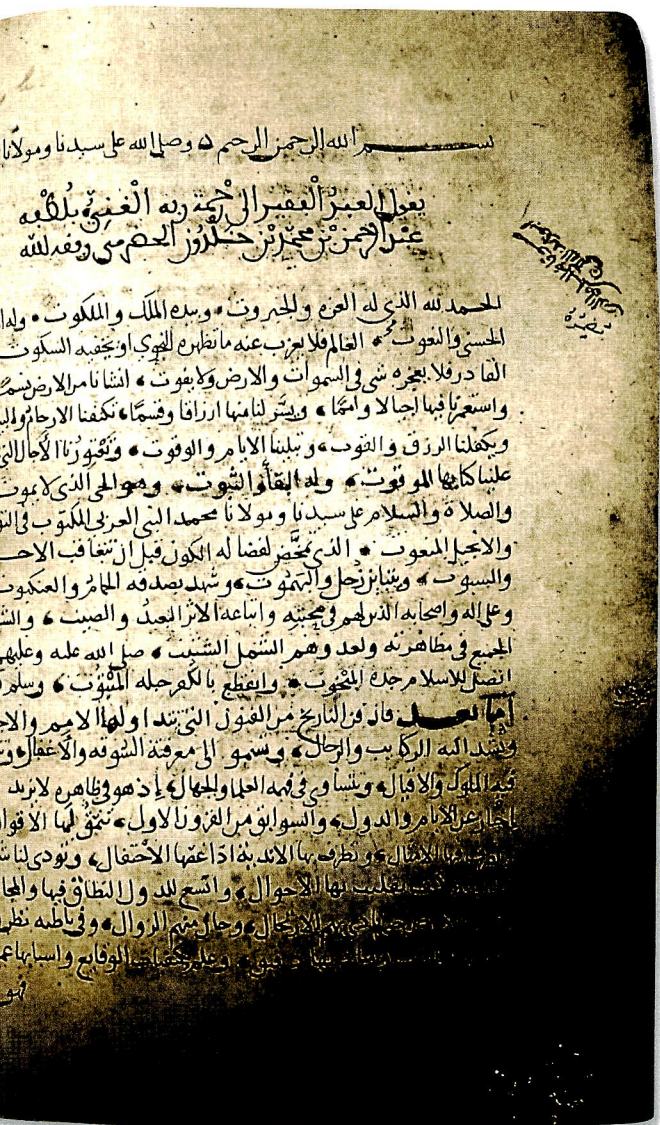 بســـــم الله الرحمن الرحيم ٥ وصلى الله على سيدنا ومولانا
يقول العبد الفقير الى رحمة ربه الغني بلطفه
عبد الرحمن بن محمد بن خلدون الحضرمي وفقه الله
الحمد لله الذى له العزة والجبروت وبيده الملك والملكوت وله ا
الحسنى والنعوت العالم فلا يعزب عنه ما تظهره النجوى او يخفيه السكوت
القادر فلا يعجزه شى فى السموات والارض ولا يفوت انشانا من الارض نسما
واستعمرنا فيها اجيالا وامما ويسر لنا منها ارزاقا وقسما تكنفنا الارحام والبيو
ويكفلنا الرزق والقوت وتبلينا الايام والوقوت وتعتورنا الآجال التى
علينا كتابها الموقوت وله البقاء والثبوت وهو الحى الذى لا يموت
والصلاة والسلام على سيدنا ومولانا محمد النبى العربى المكتوب فى التو
والانجيل المنعوت الذى تمخض لفصاله الكون قبل ان تتعاقب الاحـ
والسبوت ويتباين زحل والبهموت وشهد بصدقه الحمام والعنكبوت
وعلى اله واصحابه الذين لهم فى محبته واتباعه الاثر البعيد والصيت والشـ
الجميع فى مظاهرته ولعدوهم الشمل الشتيت صلى الله عليه وعليهم
اتصل للاسلام جده المبخوت وانقطع بالكفر حبله المبتوت وسلم
أما بعـــد فان فن التاريخ من الفنون التى تتداولها الامم والاجـ
وتشد اليه الركايب والرحال وتسمو الى معرفته السوقه والاغفال وتـ
فيه الملوك والاقيال ويتساوى فى فهمه العلما والجهال إذ هو فى ظاهره لا يزيد
اخبار عن الايام والدول والسوابق من القرون الاول تنمق لها الاقوا
وتضرب فيها الامثال وتطرف بها الاندية اذا غصها الاحتفال وتودى لنا شـ
تقلبت بها الاحوال واتسع للدول النطاق فيها والمجا
الارتحال وحان منهم الزوال وفى باطنه نظر
وعلم بكيفيات الوقايع واسبابها عمـ
فهو